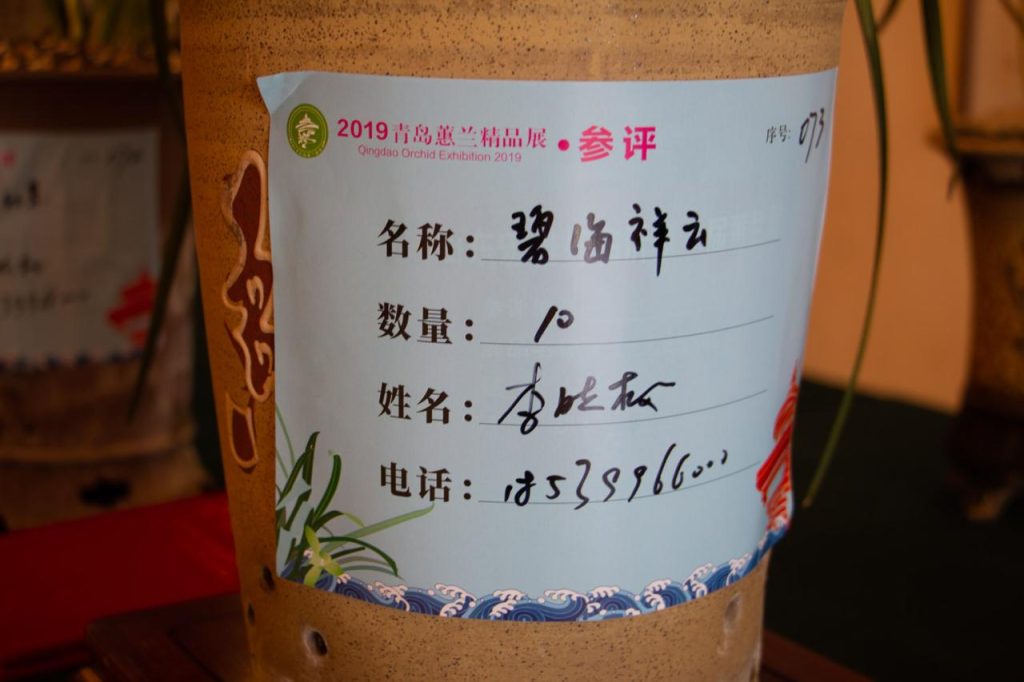 2019青岛蕙兰精品展·参评
Qingdao Orchid Exhibition 2019
序号: 073
名称: 碧海祥云
数量: 10
姓名: 李
电话: 18539966000